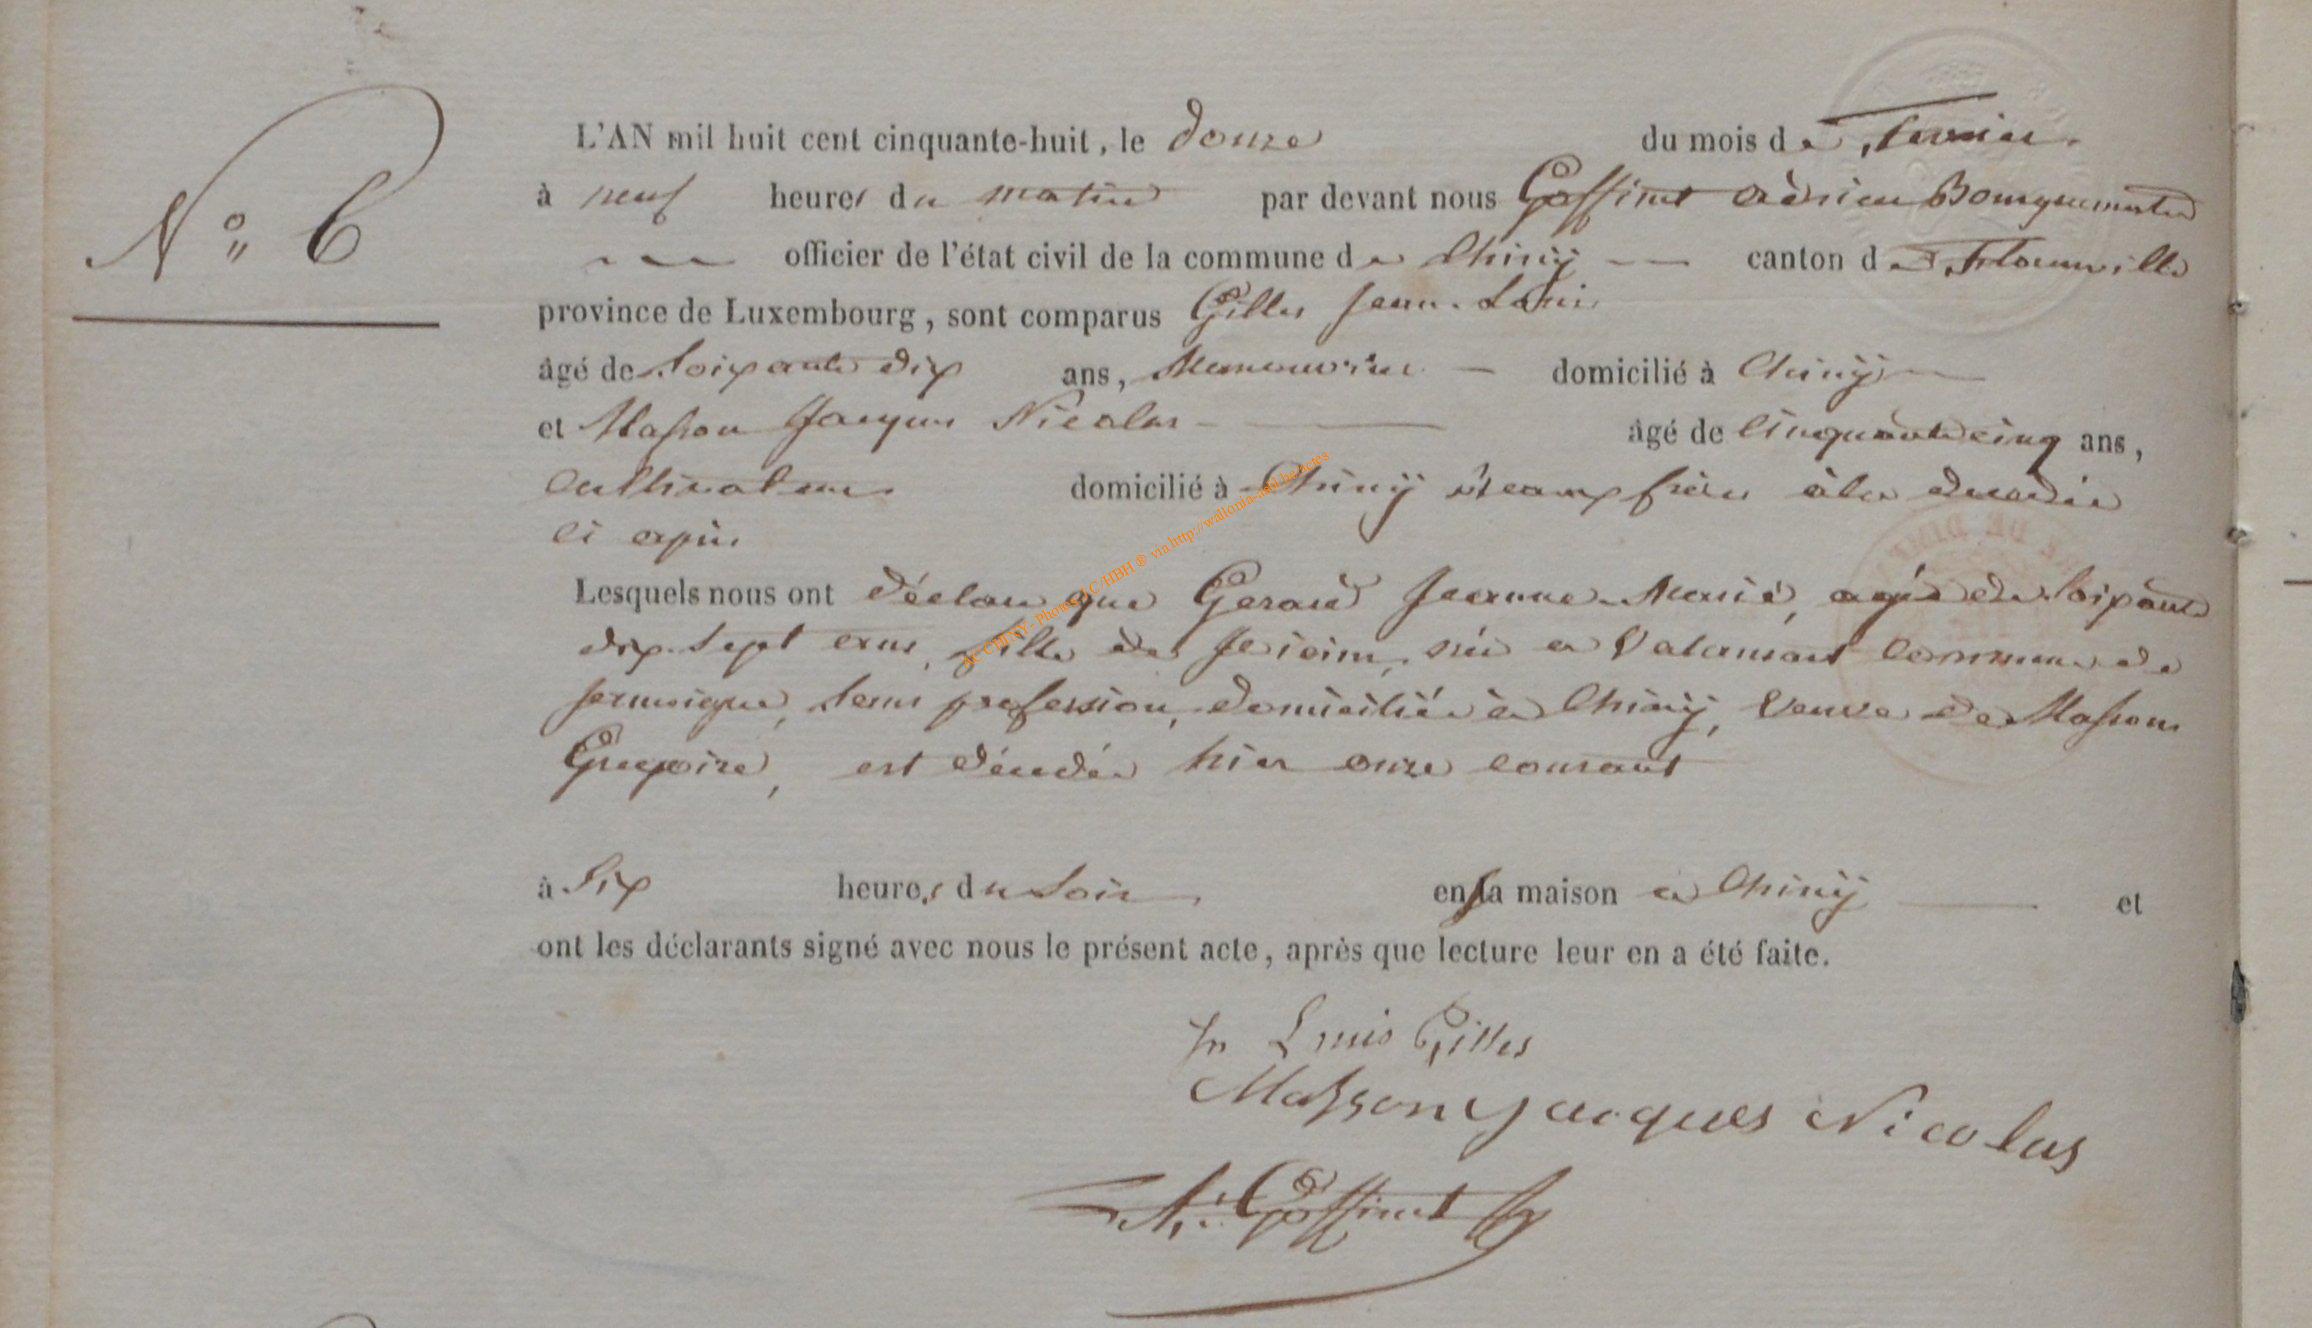 N° 6
L'AN mil huit cent cinquante-huit, le douze du mois de fevrier
à neuf heures du matin par devant nous Goffinet Adrien Bourgmestre
officier de l'état civil de la commune de Chiny canton de Florenville
province de Luxembourg, sont comparus Gilles Jean-Louis
âgé de soixante dix ans, Manouvrier domicilié à Chiny
et Masson Jacques Nicolas âgé de cinquante cinq ans,
cultivateur domicilié à Chiny beaux frères à la decedée
ci apris
Lesquels nous ont déclaré que Gerard Jeanne-Marie, agée de soixante
dix-sept ans, fille de née a Valansart commune de
Jamoigne, sans profession, domiciliée à Chiny, veuve de Masson
Gregoire, est décédée hier onze courant
à six heures du soir en sa maison a Chiny et
ont les déclarants signé avec nous le présent acte, après que lecture leur en a été faite.
Jn Louis Gilles
Masson Jacques Nicolas
A. Goffinet
AC CHINY - Photos J.C/HBH ® via http://wallonia-asbl.be/actes